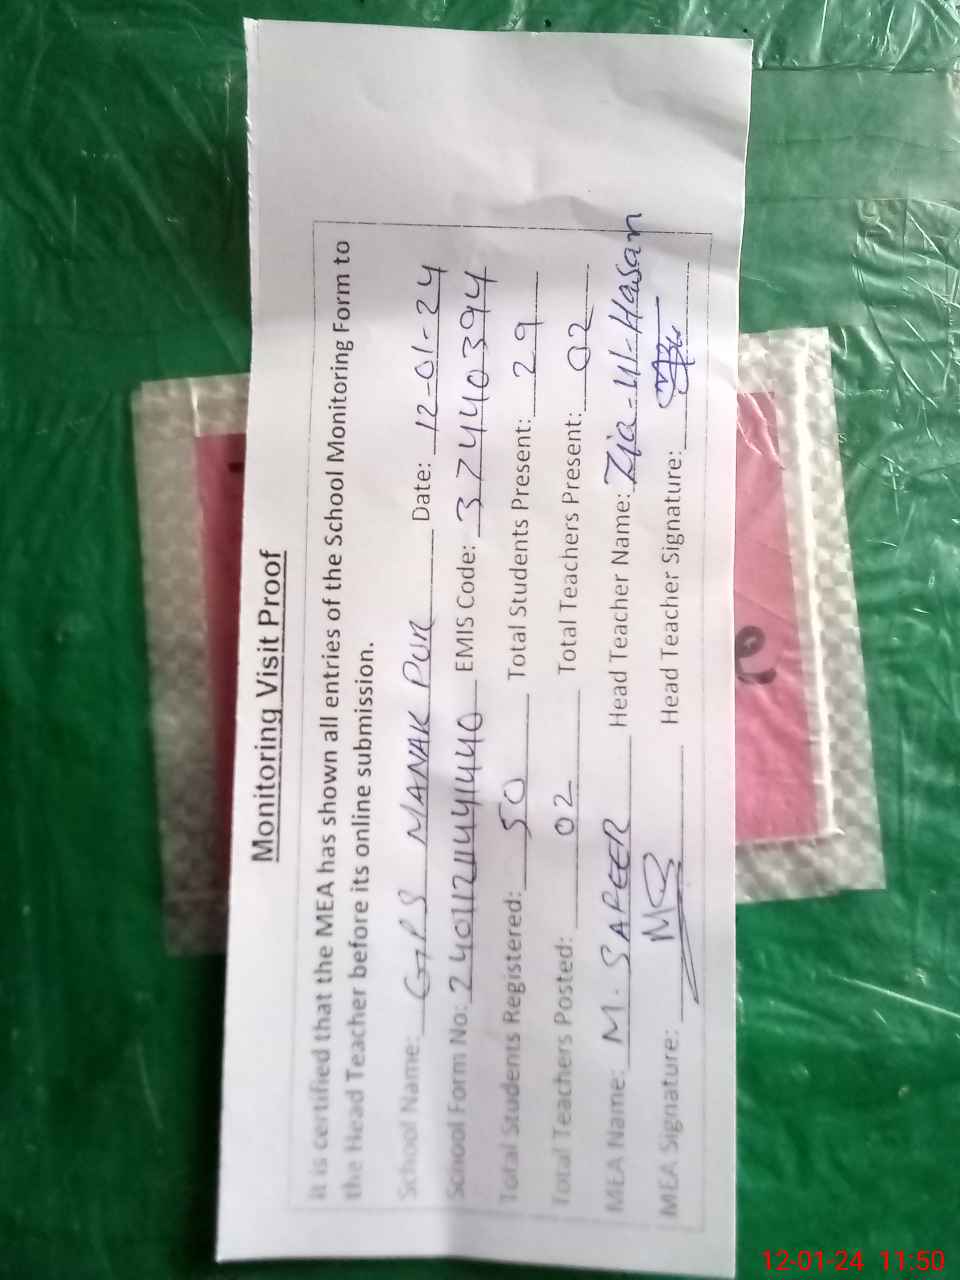 Monitoring Visit Proof
It is certified that the MEA has shown all entries of the School Monitoring Form to
the Head Teacher before its online submission.
School Name: GPS MANAK PUR Date: 12-01-24
School Form No: EMIS Code: 37440394
Total Students Registered: 50 Total Students Present: 29
Total Teachers Posted: 02 Total Teachers Present: 02
MEA Name: M. SAFEER Head Teacher Name: Zia-Ul-Hasan
MEA Signature: MS Head Teacher Signature:
12-01-24 11:50